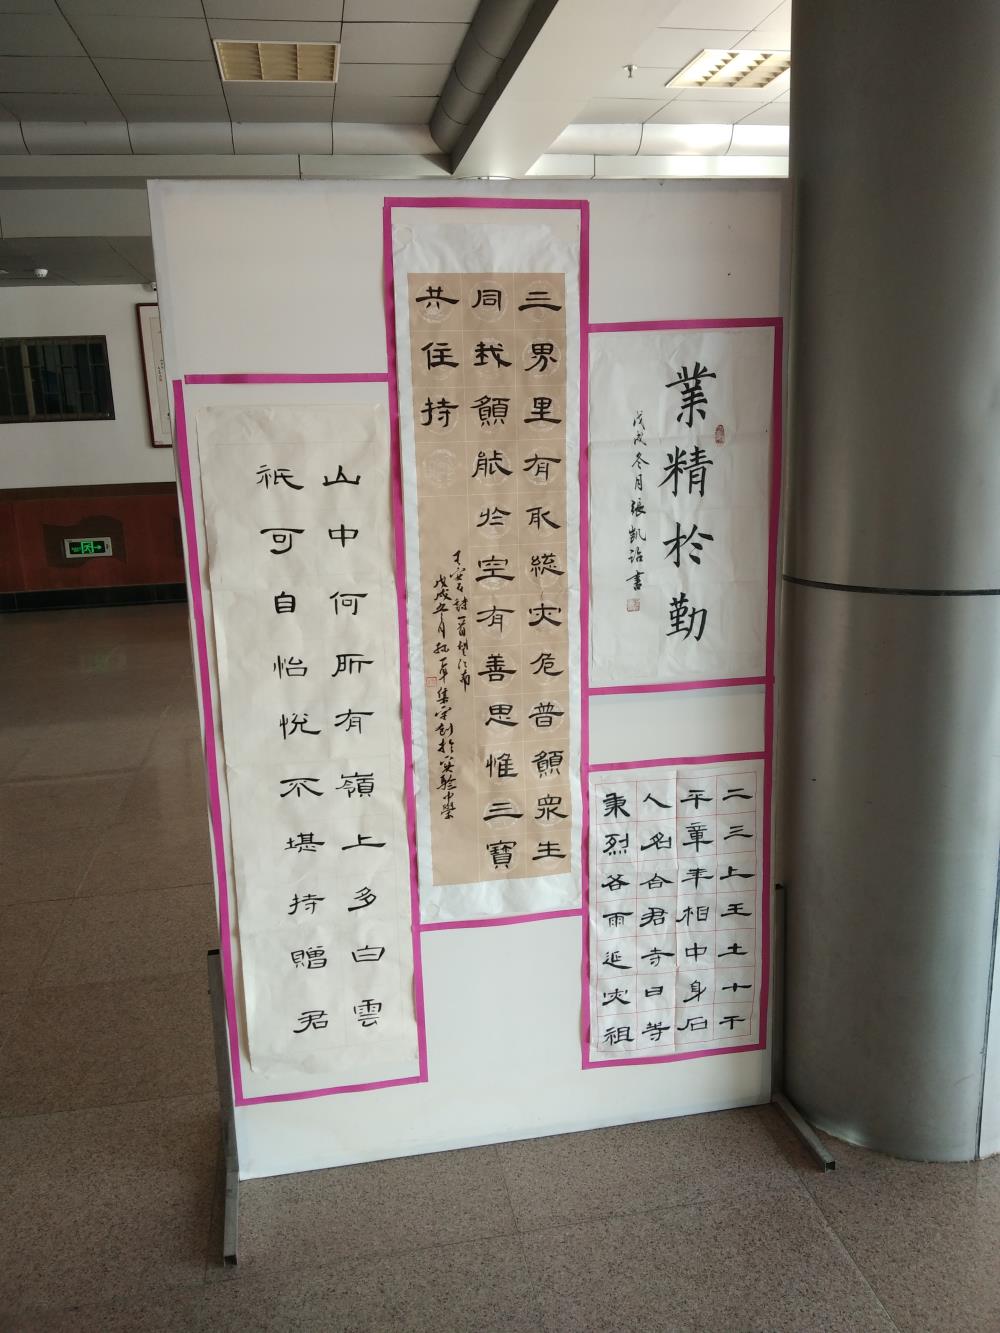 山中何所有嶺上多白雲
祇可自怡悅不堪持贈君
三界里有取総灾危普願衆生
同我願能於空有善思惟三寶
共住持
王安石詩一首望江南
業精於勤
戊戌冬月張凱詒書
二三上王土十干
平章年相中身石
人名合君寺日等
秉烈各雨延灾祖